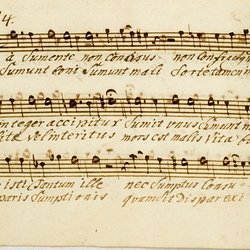 24.
a Sumente non Concisus non Confractus
Sumunt boni Sumunt mali Sorte tamen
integer accipitur Sumit unus Sumunt m
Vita vel interitus mors est malis Vita bo
isti Tantum ille nec Sumptus Consu
paris Sumptionis quam sit Dispar exi